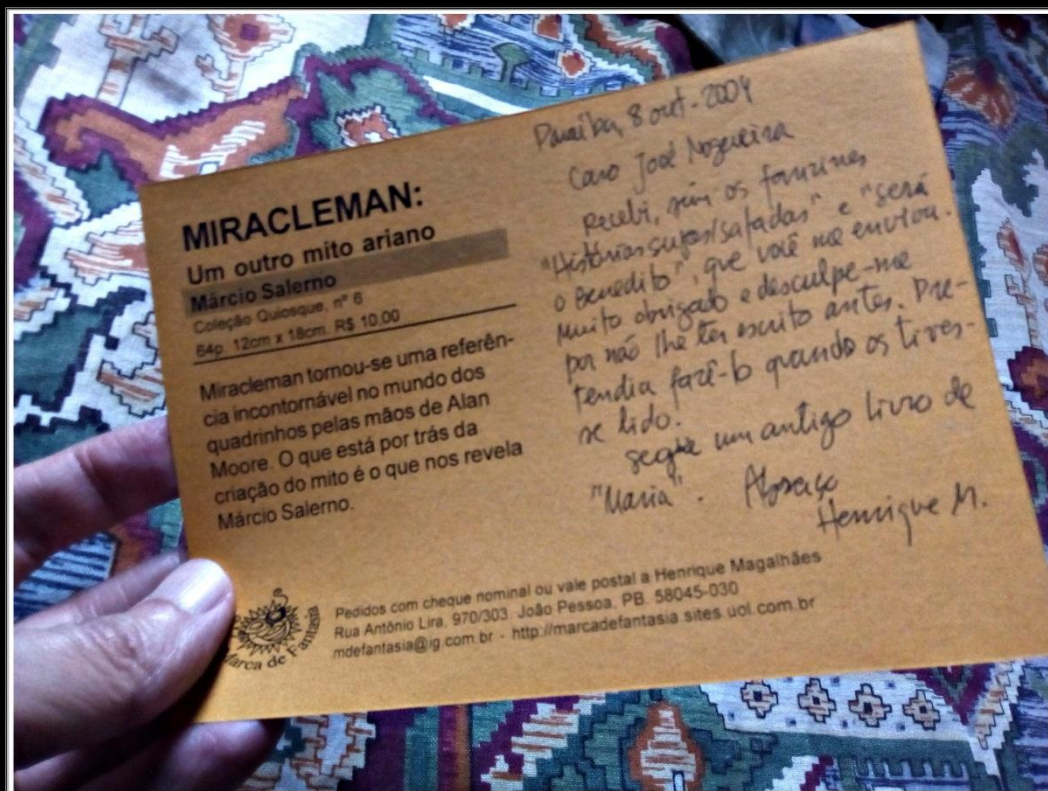 MIRACLEMAN:
Um outro mito ariano
Márcio Salerno
Coleção Quiosque, nº 6
64p. 12cm x 18cm. R$ 10,00
Miracleman tornou-se uma referên-
cia incontornável no mundo dos
quadrinhos pelas mãos de Alan
Moore. O que está por trás da
criação do mito é o que nos revela
Márcio Salerno.
Paraíba, 8 out - 2004
Caro José Nogueira
Recebi, sim os fanzines
"Histórias sujas/safadas" e "será
o Benedito", que você me enviou.
Muito obrigado e desculpe-me
por não lhe ter escrito antes. Pre-
tendia fazê-lo quando os tives-
se lido.
Segue um antigo livro de
"Maria". Abraço
Henrique M.
Marca de Fantasia
Pedidos com cheque nominal ou vale postal a Henrique Magalhães
Rua Antônio Lira, 970/303. João Pessoa, PB. 58045-030
mdefantasia@ig.com.br - http://marcadefantasia.sites.uol.com.br